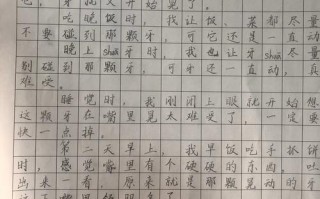 它，牙就又开始晃了。
吃晚饭时，我让饭、菜都尽量
不要碰到那颗牙，可它还是一直动，
晚上shuā牙时，我也让牙尽量
别碰到那颗牙，可牙还一直动，真
难受。
睡觉时，我刚闭上眼就开始想
这颗牙在嘴里晃太难受了，一定要
快一点掉。
第二天早上，我早饭吃手抓饼
时，感觉嘴里有个硬硬的东西，吐
出来一看，原来就是那颗晃动的牙